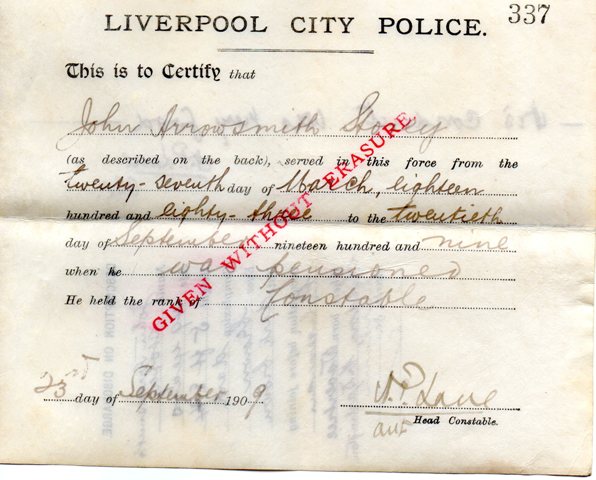 337
LIVERPOOL CITY POLICE.
This is to Certify that
John Arrowsmith Storey
(as described on the back), served in this force from the
twenty-seventh day of March, eighteen
hundred and eighty-three to the twentieth
day of September nineteen hundred and nine
when he was pensioned
He held the rank of Constable
GIVEN WITHOUT ERASURE
23rd day of September 1909
Head Constable.